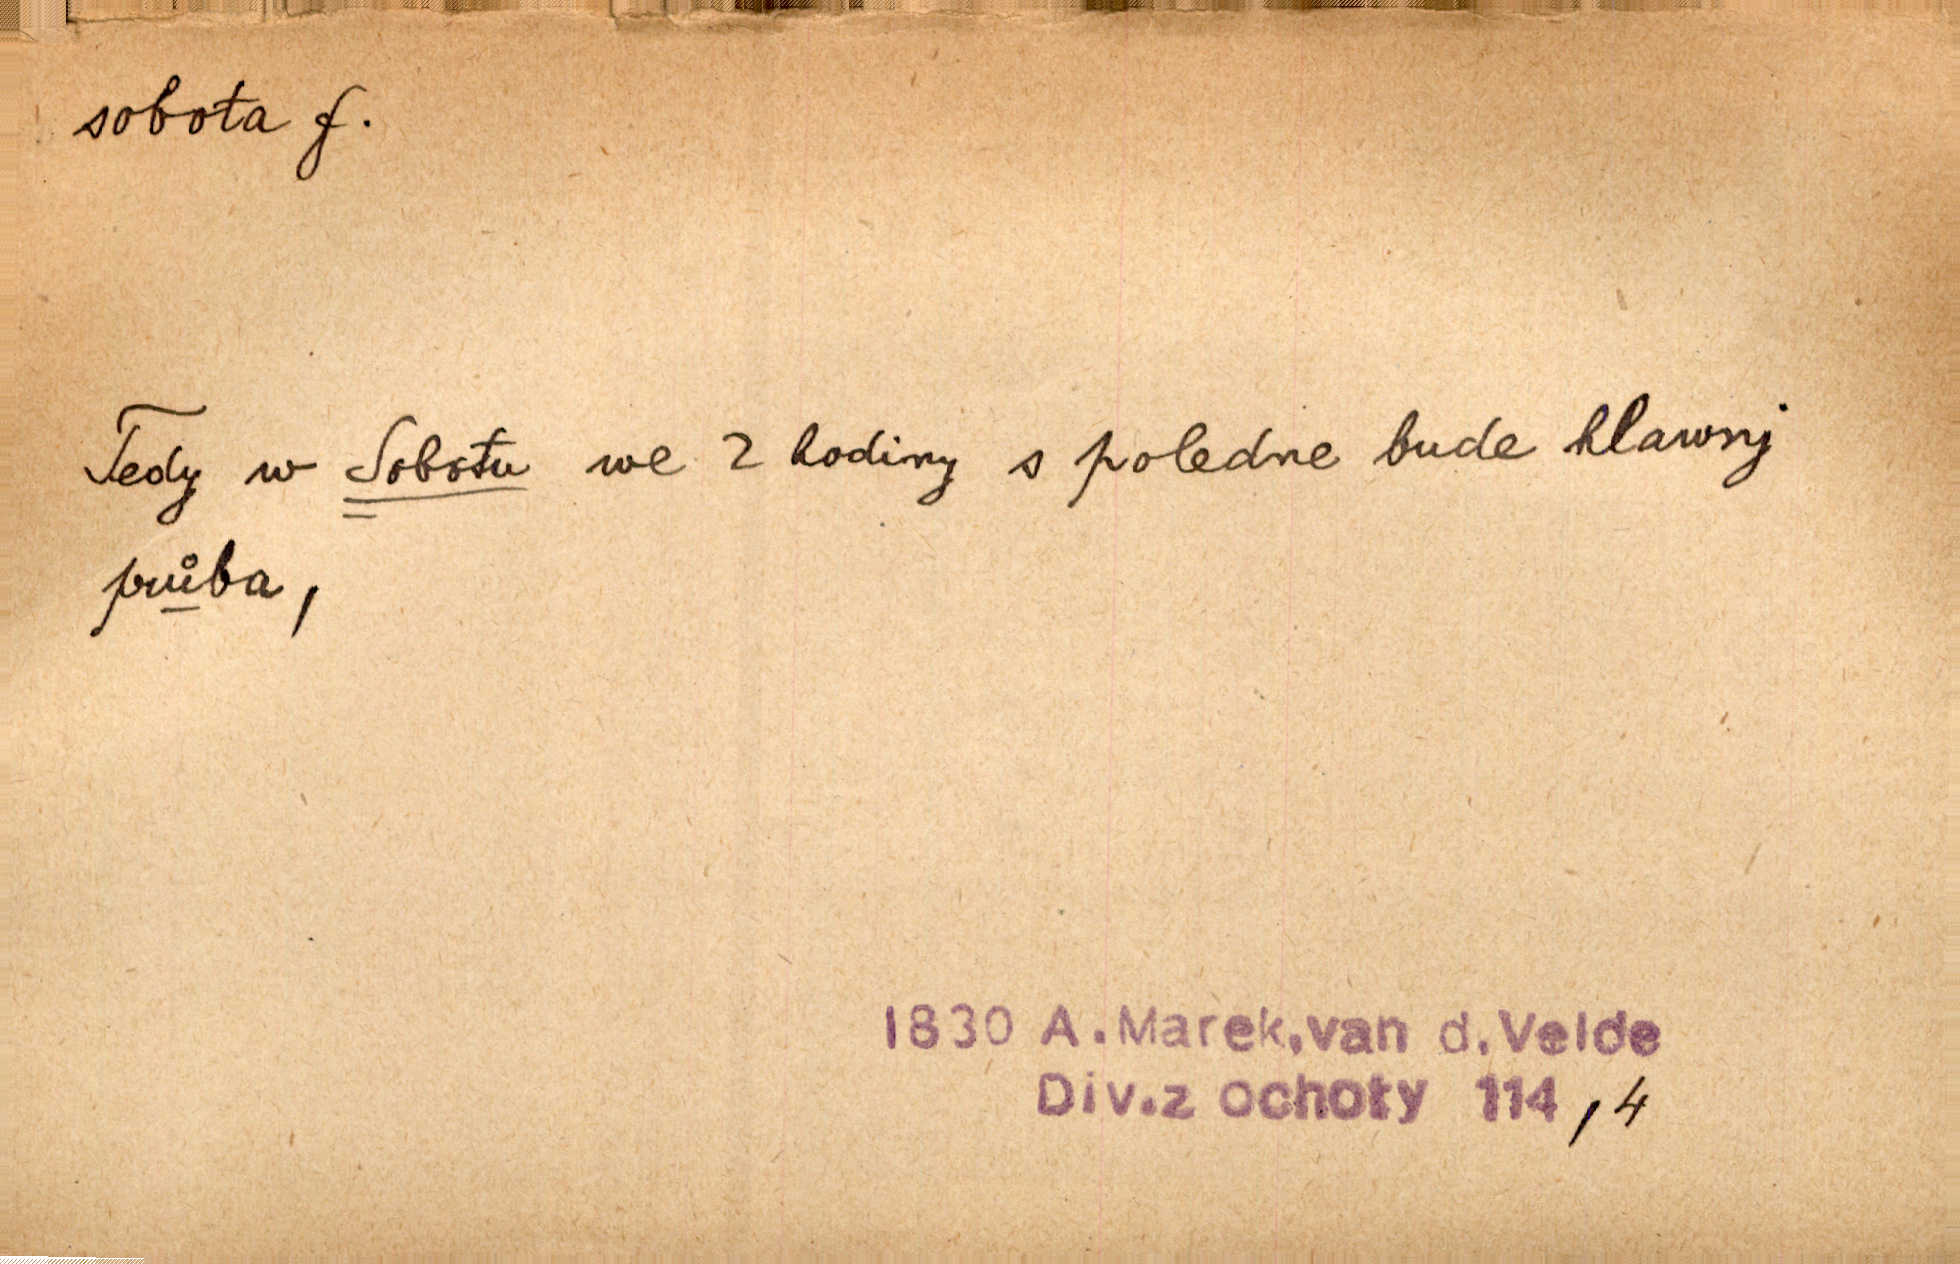 sobota f.
Tedy w Sobotu we 2 hodiny s poledne bude hlawnj
průba,
1830 A.Marek,van d.Velde
Div.z ochoty 114,4